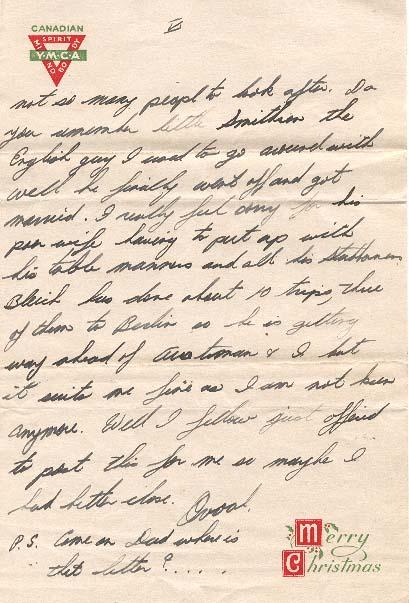 CANADIAN
SPIRIT
MIND BODY
Y·M·C·A
V
not so many people to look after. Do
you remember little Smithson the
English guy I used to go around with
well he finally went off and got
married. I really feel sorry for his
poor wife having to put up with
his table manners and all his stubborness
Bleich has done about 10 trips, three
of them to Berlin so he is getting
way ahead of & I but
it suits me fine as I am not keen
anymore. Well a fellow just offered
to post this for me so maybe I
had better close.
P.S. Come on Dad where is
that letter?.....
Merry
Christmas